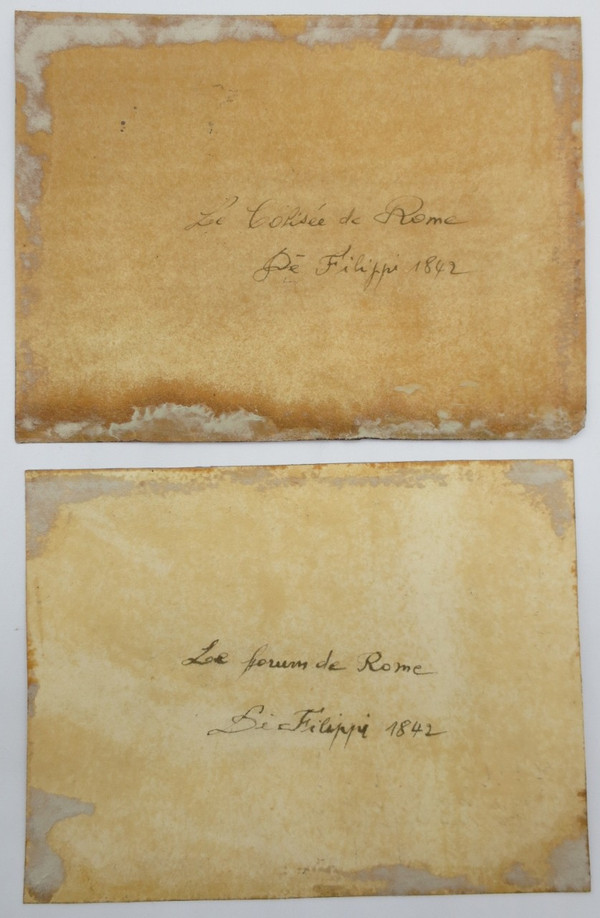 Le Colisée de Rome
Dē Filippi 1842
Le forum de Rome
Dé Filippi 1842